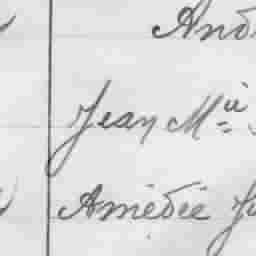 And
Jean M.ie
Amédée